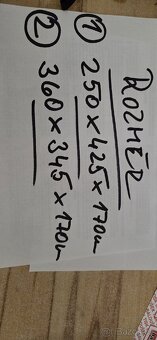 ROZMĚR
① 250 x 425 x 170cm
② 360 x 345 x 170cm